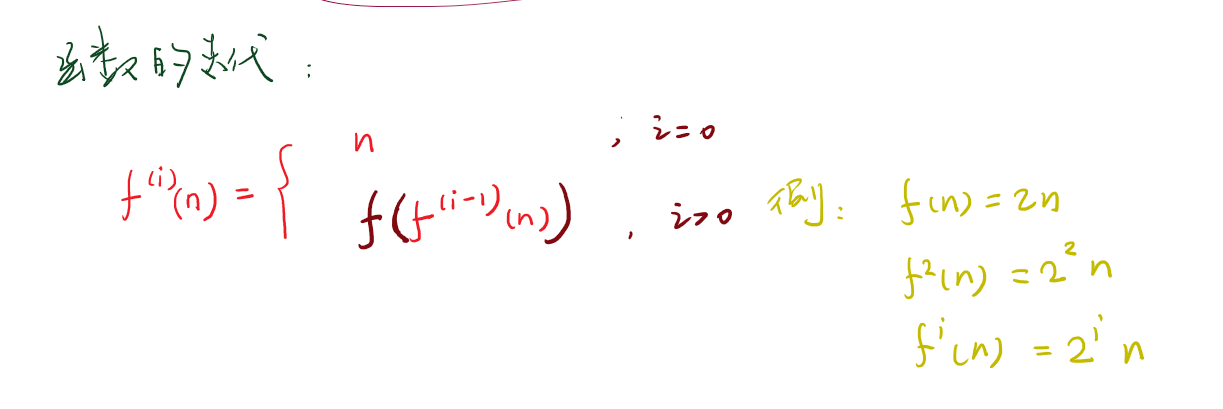 函数的迭代：
f^(i)(n) = { n , i=0
f(f^(i-1)(n)) , i>0
例： f(n) = 2n
f²(n) = 2² n
f^i(n) = 2^i n